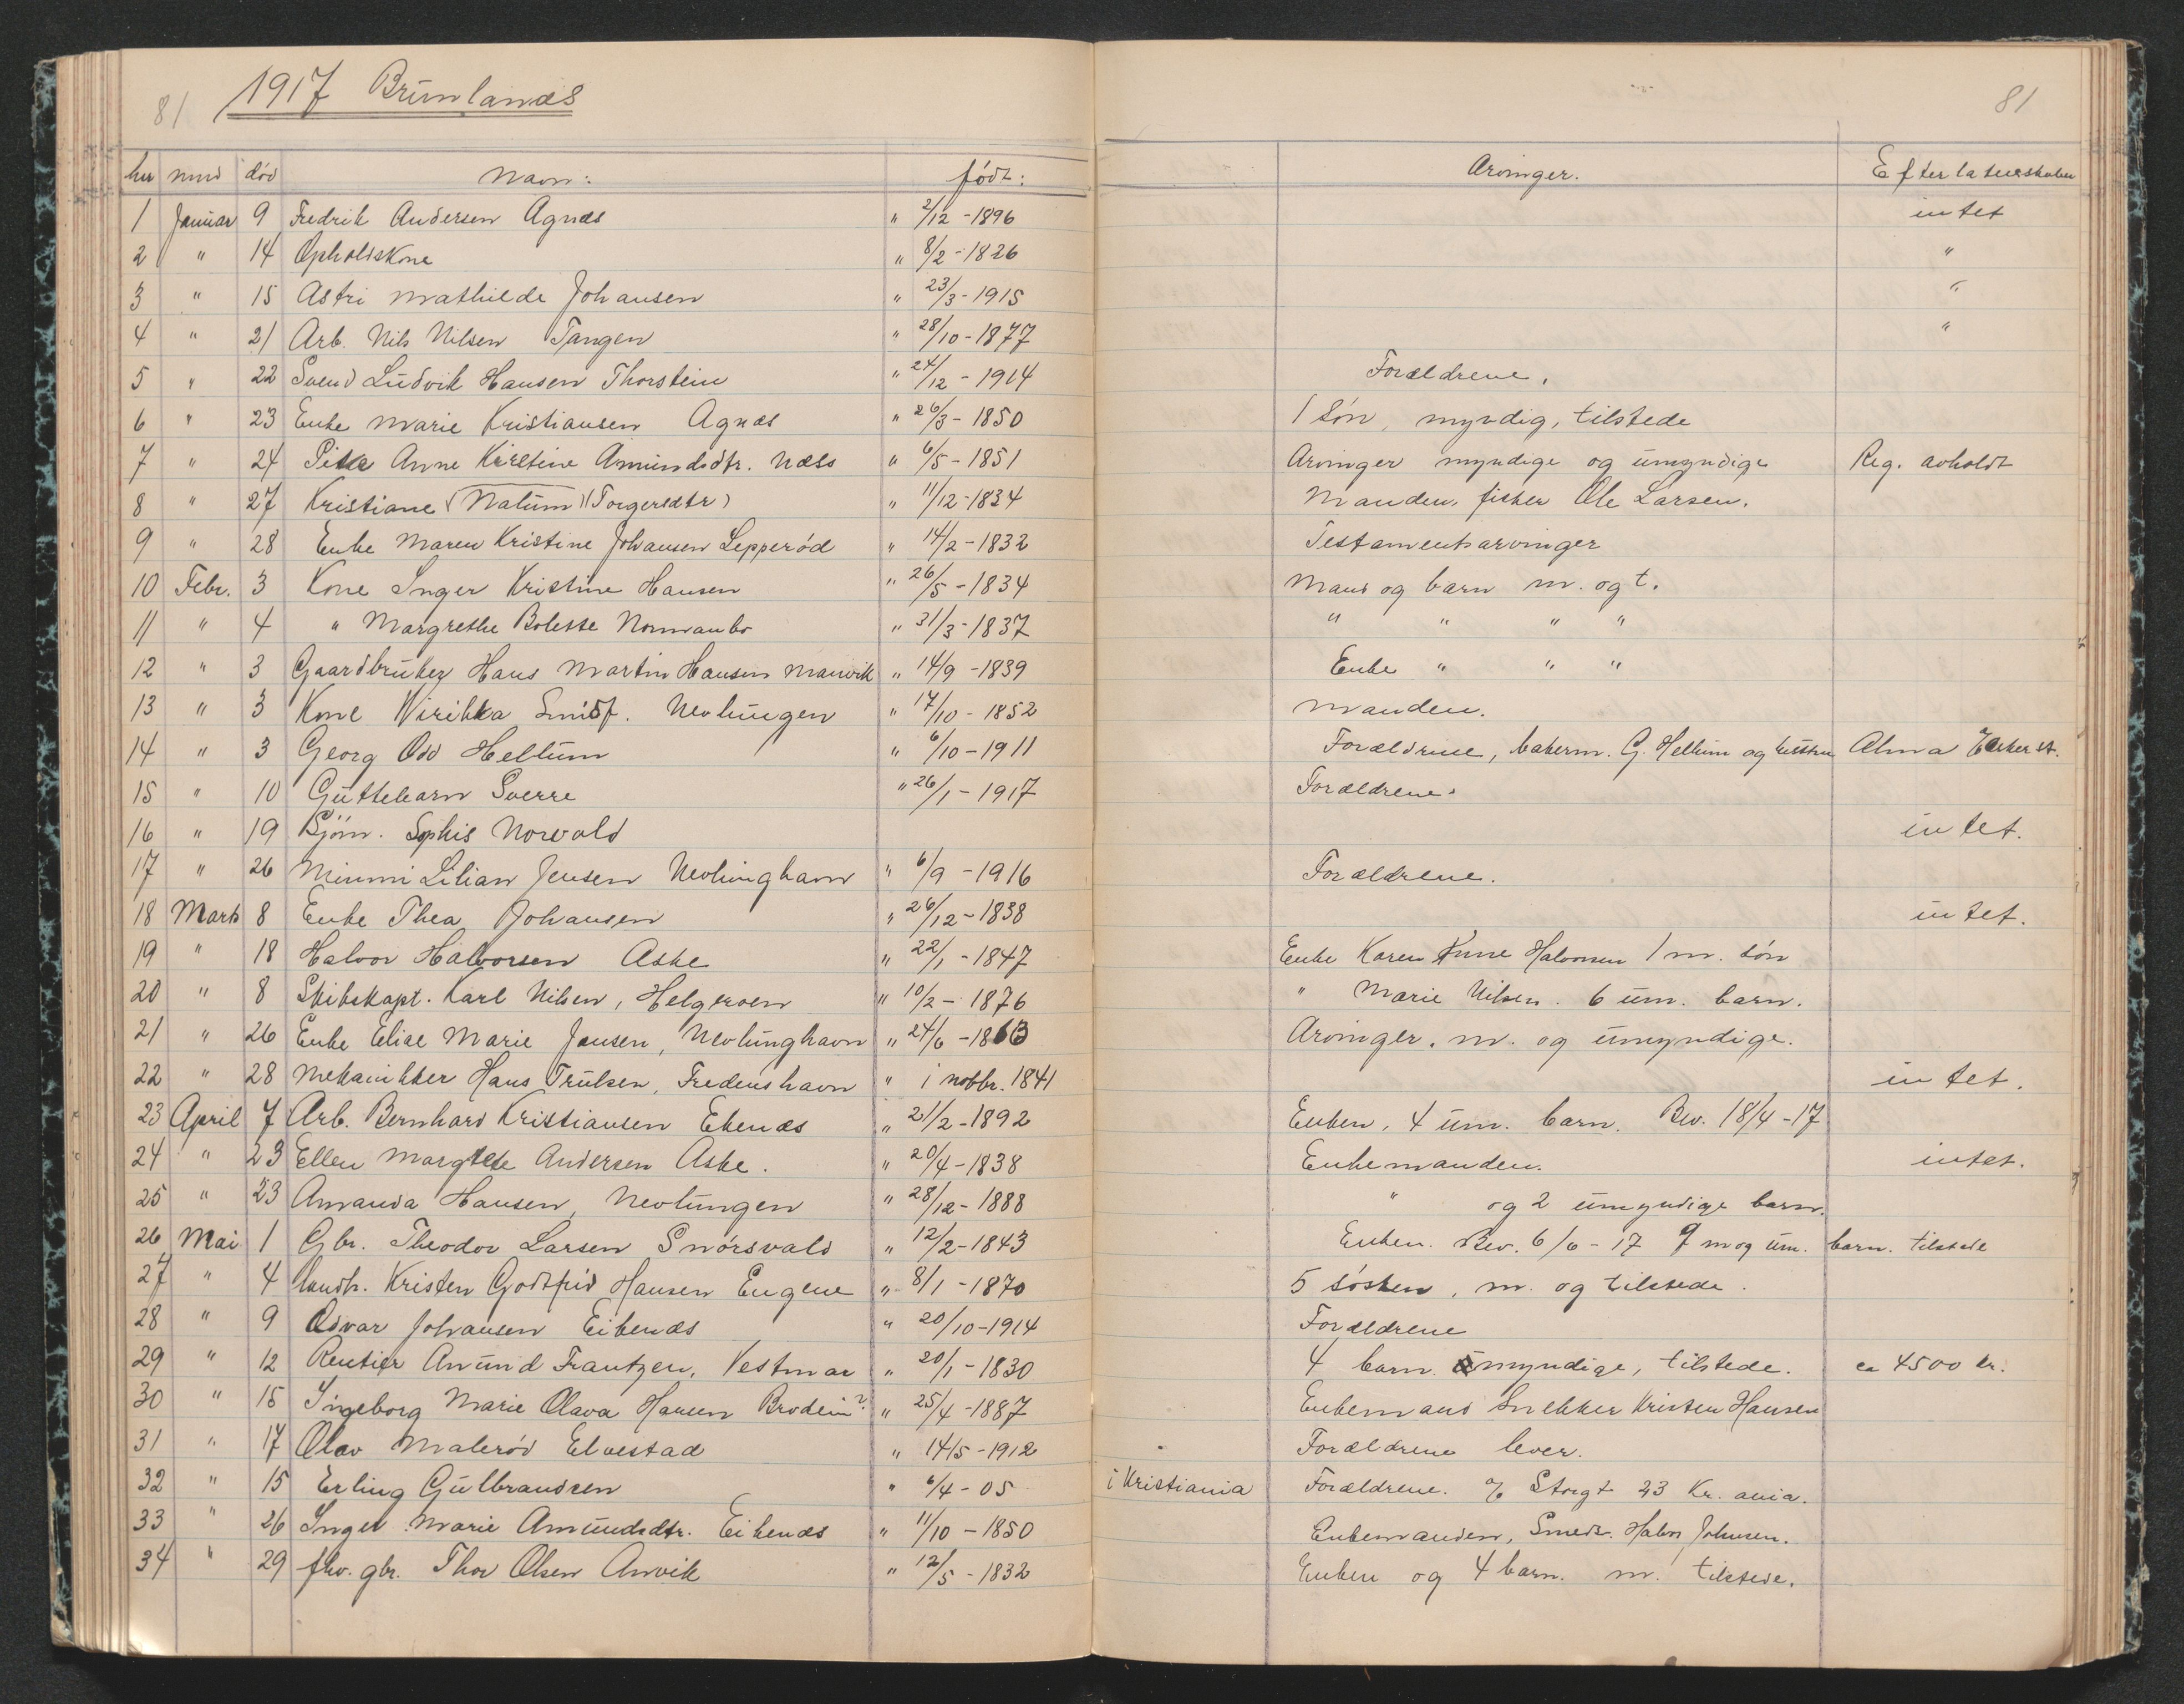 81 1917 Brunlanæs 81
nr mnd død Navn: født: Arvinger. Efterlatenskaber
1 Januar 9 Fredrik Andersen Agnæs " 2/12 - 1896 intet
2 " 14 Opholdskone " 8/2 - 1826 "
3 " 15 Astri Mathilde Johansen " 23/3 - 1915 "
4 " 21 Arb. Nils Nilsen Tangen " 28/10 - 1877 "
5 " 22 Svend Ludvik Hansen Thorstein " 24/12 - 1914 Forældrene.
6 " 23 Enke Marie Kristiansen Agnæs " 26/3 - 1850 1 søn, myndig, tilstede
7 " 24 Pike Anne Kirstine Amundsdtr. Næss " 6/5 - 1851 Arvinger myndige og umyndige Reg. avholdt
8 " 27 Kristiane (Nalum) (Torgersdtr) " 11/12 - 1834 Manden, fisker Ole Larsen.
9 " 28 Enke Maren Kristine Johansen Lepperød " 14/2 - 1832 Testamentsarvinger
10 Febr. 3 Kone Inger Kristine Hansen " 26/5 - 1834 Mand og barn m. og t.
11 " 4 " Margrethe Bolette Nomanbo " 31/3 - 1837 " " " "
12 " 3 Gaardbruker Hans Martin Hansen Manvik " 14/9 - 1839 Enke " " "
13 " 3 Kone Virikka Smidt. Nevlungen " 17/10 - 1852 Manden.
14 " 3 Georg Odd Hellum " 6/10 - 1911 Forældrene, bakerm. G. Hellum og hustru Alma
15 " 10 Guttebarn Sverre " 26/1 - 1917 Forældrene.
16 " 19 Sjøm. Sophis Norvald intet.
17 " 26 Minmi Lilian Jensen Nevlunghavn " 6/9 - 1916 Forældrene.
18 Marts 8 Enke Thea Johansen " 26/12 - 1838 intet.
19 " 18 Halvor Halvorsen Aske " 22/1 - 1847 Enke Karen Anne Halvorsen 1 m. søn
20 " 8 Skibskapt. Karl Nilsen, Helgeroen " 10/2 - 1876 " Marie Nilsen. 6 um. barn.
21 " 26 Enke Elise Marie Jensen, Nevlunghavn " 24/6 - 1863 Arvinger. m. og umyndige.
22 " 28 Mekanikker Hans Trulsen, Fredenshavn " i novbr. 1841 intet.
23 April 7 Arb. Bernhard Kristiansen Ekenæs " 21/2 - 1892 Enken, 4 um. barn. Bev. 18/4 - 17
24 " 23 Ellen Margrete Andersen Aske. " 20/4 - 1838 Enkemanden. intet.
25 " 23 Amanda Hansen, Nevlungen " 28/12 - 1888 " og 2 umyndige barn.
26 Mai 1 Gbr. Theodor Larsen Snørsvald " 12/2 - 1843 Enken. Bev. 6/6 - 17 9 m og um. barn. tilstede
27 " 4 landh. Kristen Godtfrid Hansen Eugene " 8/1 - 1870 5 søsken, m. og tilstede.
28 " 9 Edvar Johansen Eikenæs " 20/10 - 1914 Forældrene
29 " 12 Rentier Amund Frantzen, Vestmar " 20/1 - 1830 4 barn myndige, tilstede. ca 4500 kr.
30 " 15 Ingeborg Marie Olava Hansen Brodein? " 25/4 - 1887 Enkemand Snekker Kristen Hansen
31 " 17 Olav Malerød Elvestad " 14/5 - 1912 Forældrene lever.
32 " 15 Erling Gulbrandsen " 6/4 - 05 i Kristiania Forældrene. % Storgt 23 Kr.ania.
33 " 26 Inger Marie Amundsdtr. Eikenæs " 11/10 - 1850 Enkemanden, Smedr. Halvor Johnsen.
34 " 29 fhv. gbr. Thor Olsen Anvik " 12/5 - 1832 Enken og 4 barn. m. tilstede.